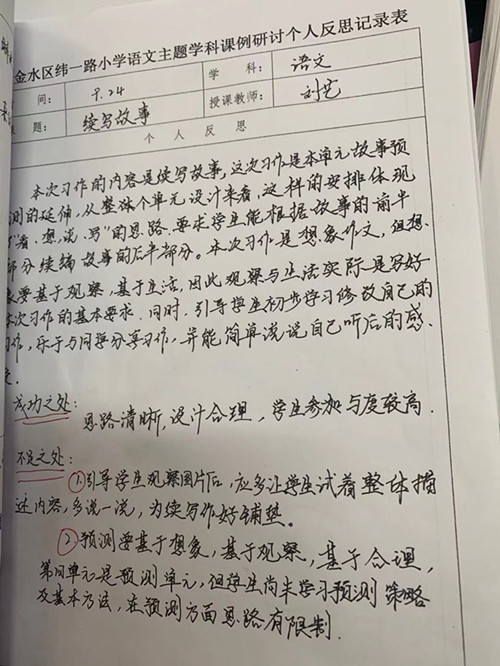 金水区纬一路小学语文主题学科课例研讨个人反思记录表
间: 9.24 学 科: 语文
题: 续写故事 授课教师: 刘艺
个 人 反 思
本次习作的内容是续写故事,这次习作是本单元故事预
测的延伸,从整体个单元设计来看,这样的安排体现
"看、想、说、写"的思路,要求学生能根据故事的前半
部分续编故事的后半部分。本次习作是想象作文,但想
象要基于观察,基于生活,因此观察与生活实际是写好
本次习作的基本要求,同时,引导学生初步学习修改自己的
习作,乐于与同学分享习作,并能简单说说自己听后的感
受.
成功之处: 思路清晰,设计合理,学生参加与度较高.
不足之处:
①引导学生观察图片后,应多让学生试着整体描
述内容,多说一说,为续写作好铺垫。
②预测要基于想象,基于观察,基于合理,
第四单元是预测单元,但学生尚未学习预测策略
及基本方法,在预测方面思路有限制.